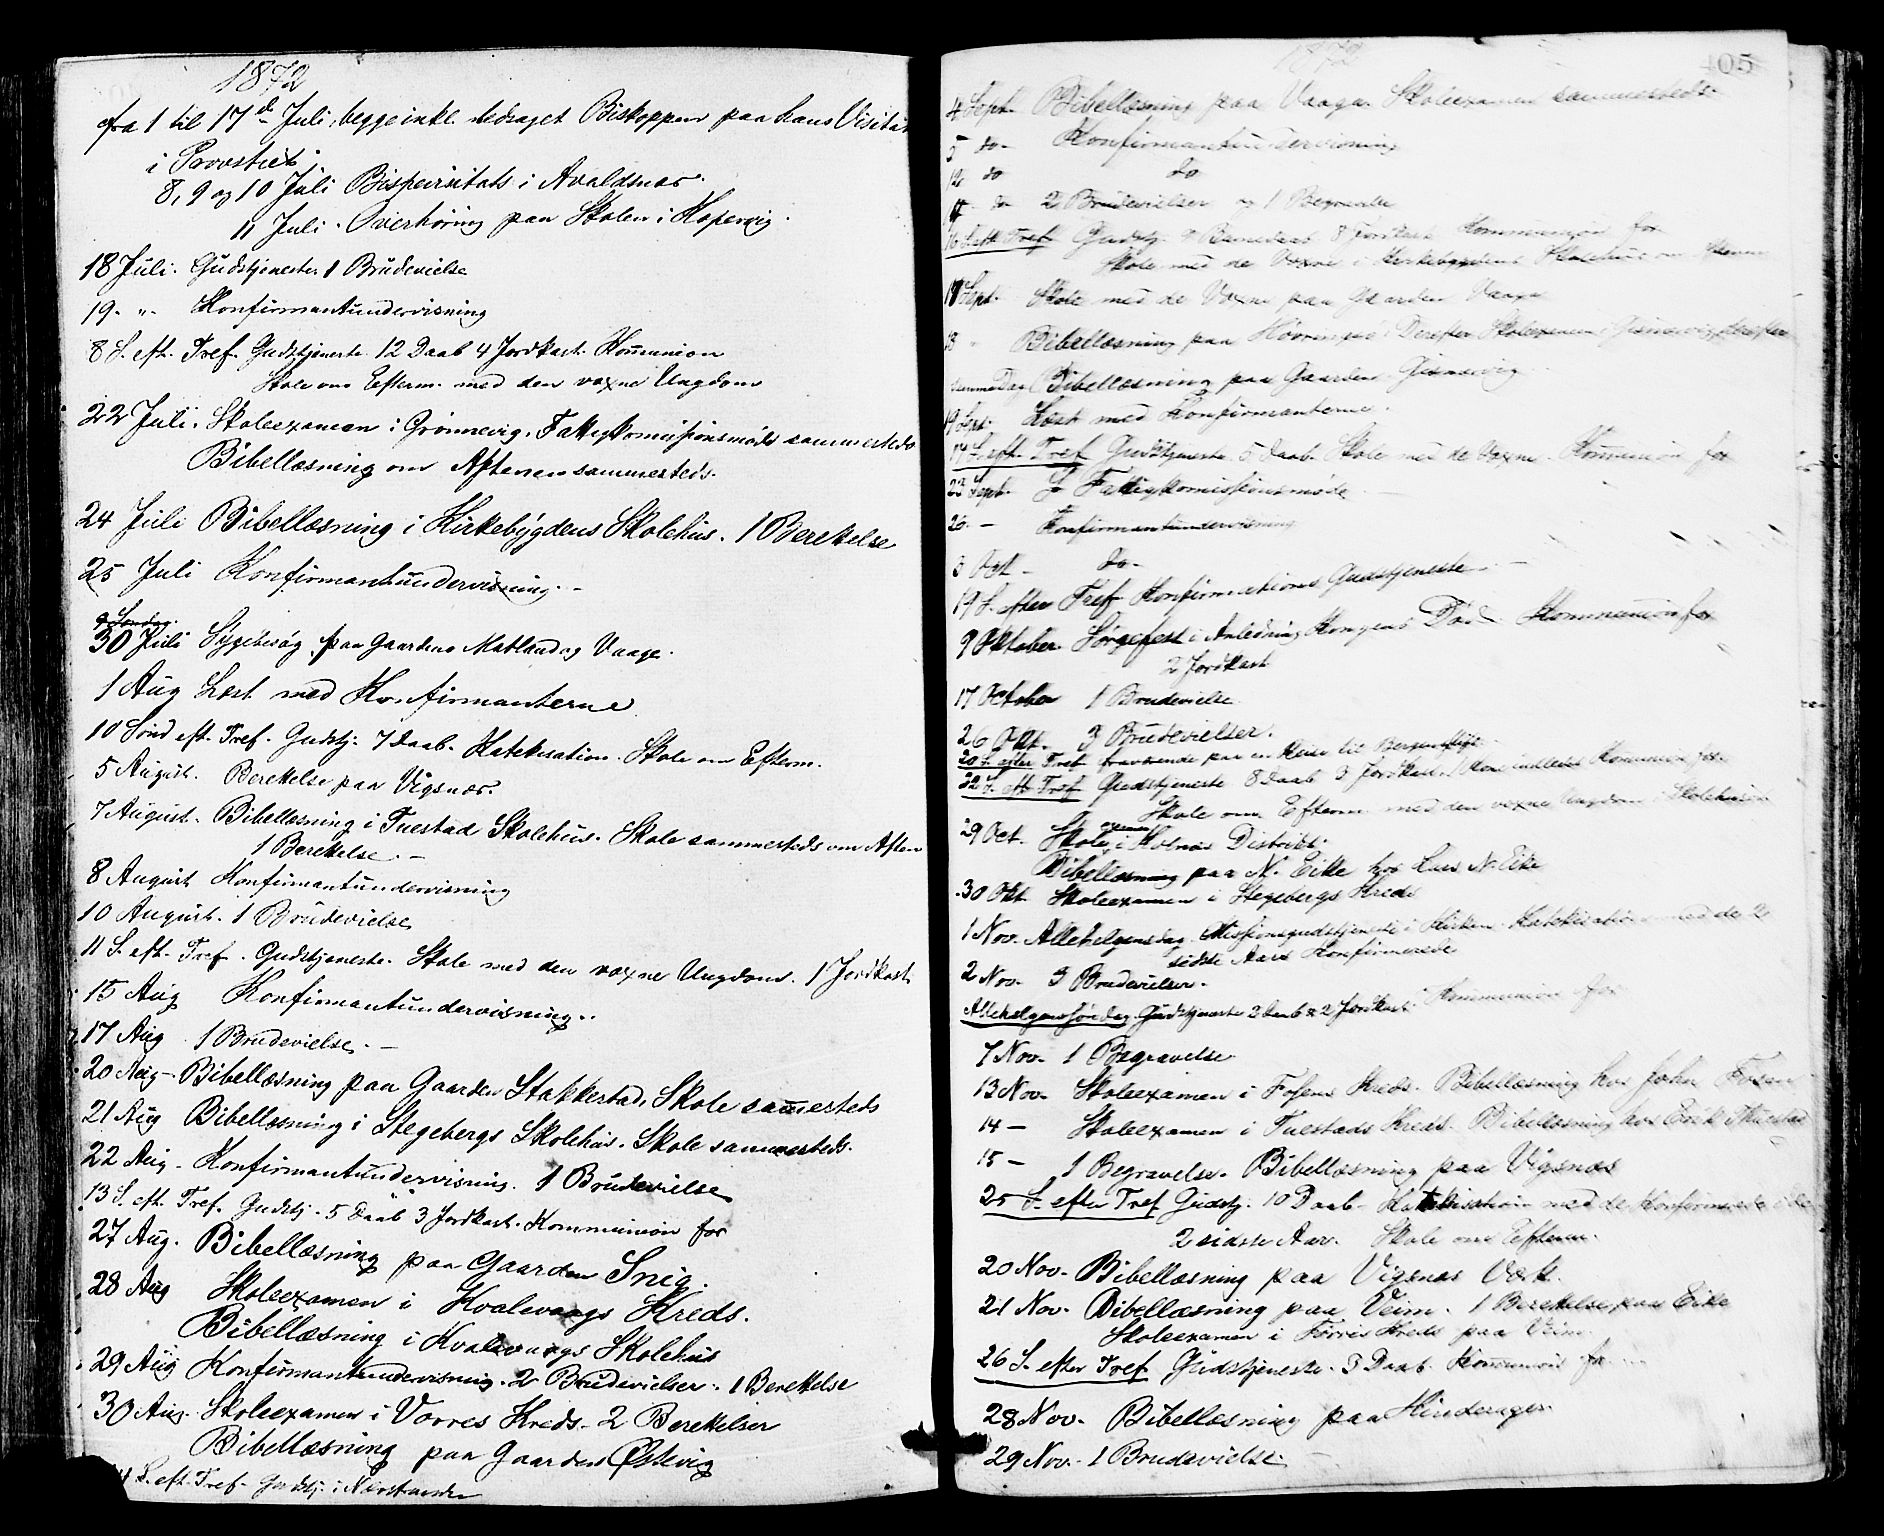 1872
fra 1 til 17de Juli, begge inkl. ledsaget Biskoppen paa hans Visitas
i Provstiet.
8, 9 og 10 Juli Bispevisitats i Avaldsnæs.
11 Juli. Overhøring paa Skolen i Kopervig.
18 Juli. Gudstjeneste. 1 Brudevielse
19. „ Konfirmantundervisning
8 S. eft. Tref. Gudstjeneste. 12 Daab 4 Jordkast. Kommunion
Skole om Efterm. med den voxne Ungdom
22 Juli. Skoleexamen i Grønnevig. Fattigkomissionsmøde sammesteds
Bibellæsning om Aftenen sammesteds.
24 Juli Bibellæsning i Kirkebygdens Skolehus. 1 Berettelse
25 Juli Konfirmantundervisning. -
9 Søndag.
30 Juli Sygebesøg paa Gaardene Matland og Vaage.
1 Aug Læst med Konfirmanterne
10 Sønd eft. Tref. Gudstj. 7 Daab. Katekisation. Skole om Efterm.
5 August. Berettelse paa Vigsnæs.
7 August. Bibellæsning i Tuestad Skolehus. Skole sammesteds om Aften
1 Berettelse. -
8 August Konfirmantundervisning
10 August. 1 Brudevielse
11 S. eft. Tref. Gudstjeneste. Skole med den voxne Ungdom. 1 Jordkast
15 Aug Konfirmantundervisning.
17 Aug 1 Brudevielse. -
20 Aug - Bibellæsning paa Gaarden Stakkestad. Skole sammesteds
21 Aug Bibellæsning i Stegebergs Skolehus. Skole sammesteds.
22 Aug. Konfirmantundervisning. 1 Brudevielse
13 S. eft. Tref. Gudstj. 5 Daab 3 Jordkast. Kommunion for
27 Aug. Bibellæsning paa Gaarden Snig.
28 Aug Skoleexamen i Kvalevaags Kreds.
Bibellæsning i Kvalevaags Skolehus
29 Aug Konfirmantundervisning. 2 Brudevielser. 1 Berettelse
30 Aug. Skoleexamen i Vorres Kreds. 2 Berettelser
Bibellæsning paa Gaarden Østevig
S. eft. Tref. Gudstj. i
1872
405
4 Sept. Bibellæsning paa Vaage. Skoleexamen sammesteds.
5 do - Konfirmantundervisning
12 do do
do 2 Brudevielser og 1 Begravelse
16 S. eft. Tref. Gudstj. Barnedaab 8 Jordkast Kommunion for
Skole med de Voxne i Kirkebygdens Skolehus om Aftenen
Sept. Skole med de Voxne paa Gaarden Vaage
18 „ Bibellæsning paa Derefter Skoleexamen i
samme Dag Bibellæsning paa Gaarden
19 Sept. Læst med Konfirmanterne.
17 S. eft. Tref Gudstjeneste 5 Daab. Skole med de Voxne. Kommunion for
23 Sept. Fattigkomissionsmøde
26. - Konfirmantundervisning
3 Oct - do -
19 S. efter Tref Konfirmations Gudstjeneste
9 Oktober. Sørgefest i Anledning Kongens Død. Kommunion for
2 Jordkast
17 October 1 Brudevielse
26 Okt. 3 Brudevielser.
20 S. efter Tref fraværende paa en Reise til Bergen
22 S. eft Tref Gudstjeneste 8 Daab 3 Jordkast. 1 Kone indledet Kommunion for
Skole om Efterm med den voxne Ungdom i Skolehuset
29 Oct. Skoleexamen i Kolnæs Distrikt.
Bibellæsning paa N. Eike hos Lars N. Eike
30 Okt Skoleexamen i Stegebergs Kreds
1 Nov. Allehelgensdag. Missionsgudstjeneste i Kirken. Katekisation med de 2
sidste Aars Konfirmerede
2 Nov. 3 Brudevielser.
Allehelgenssøndag. Gudstjeneste 2 Daab & 2 Jordkast. Kommunion for
7 Nov. 1 Begravelse
13 Nov. Skoleexamen i Fosens Kreds. Bibellæsning hos John Fosen
14 - Skoleexamen i Tuestads Kreds. Bibellæsning hos Erik Thuestad
15 - 1 Begravelse. Bibellæsning paa Vigsnæs
25 S. efter Tref Gudstj. 10 Daab. Katekisation med de Konfirmerede i de
2 sidste Aar. Skole om Efterm.
20 Nov. Bibellæsning paa Vigsnæs Værk.
21 Nov. Bibellæsning paa Veim. 1 Berettelse paa Eike
Skoleexamen i Førres Kreds paa Veim.
26 S. efter Tref Gudstjeneste. 3 Daab. Kommunion for
28 Nov. Bibellæsning paa Hinderager
29 Nov. 1 Brudevielse.